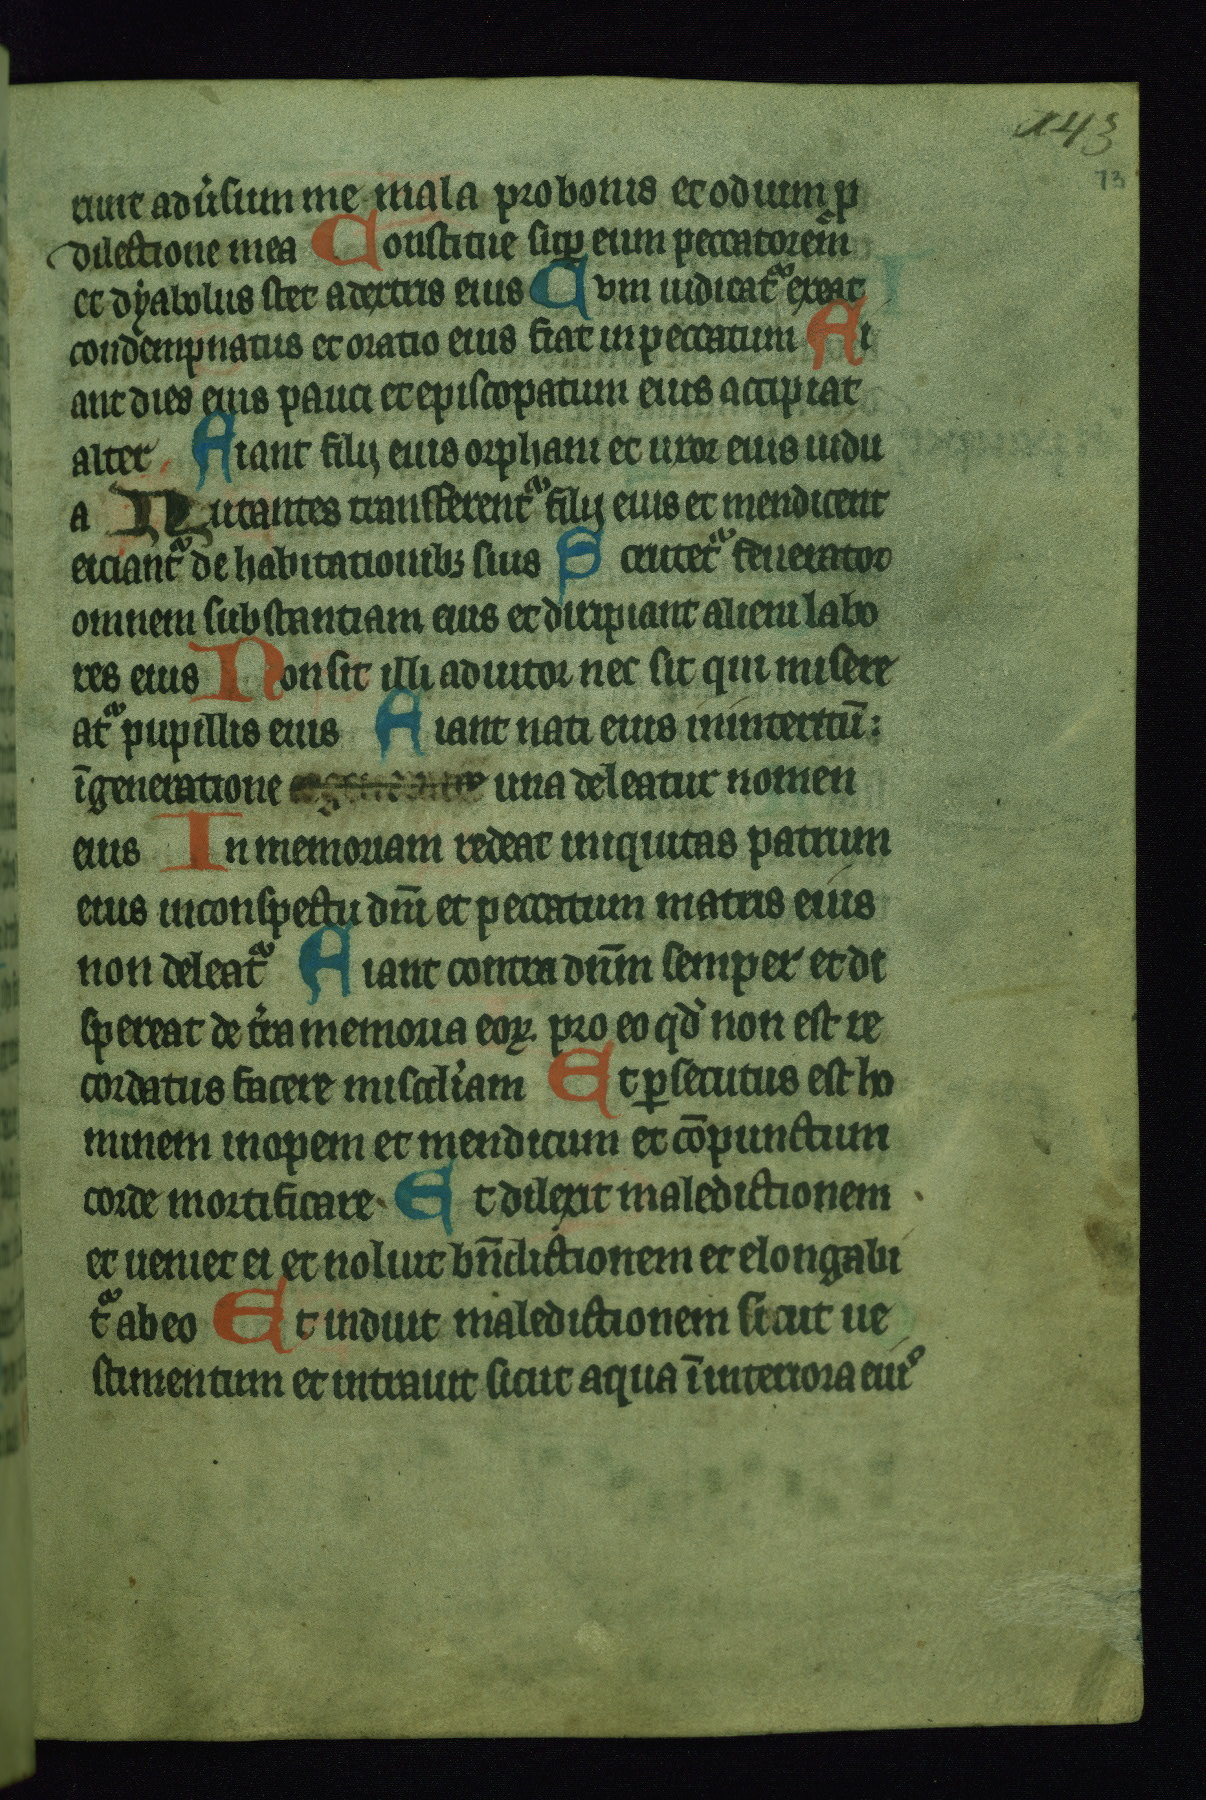 143
73
runt adu̾sum me mala pro bonis et odium p̱
dilectione mea Constitue sup̱ eum peccatorem̄
et dyabolus stet adextris eius Cvm iudicatᷓ exeat
condempnatus et oratio eius fiat in peccatum Fi
ant dies eius pauci et episcopatum eius accipiat
alter Fiant filij eius orphani et uxor eius uidu
a Nutantes transferentᷓ filij eius et mendicent
eiciantᷓ de habitationibꝫ suis Scrutetᷓ fenerator
omnem substantiam eius et diripiant alieni labo
res eius Non sit illi adiutor nec sit qui misere
atᷓ pupillis eius Fiant nati eius in interitū :
ī generatione una deleatur nomen
eius In memoriam redeat iniquitas patrum
eius in conspectu dnī et peccatum matris eius
non deleatᷓ Fiant contra dn̄m semper et di
spereat de tr̾a memoria eoꝝ pro eo qd̾ non est re
cordatus facere mis̾cdi̾am Et ꝑsecutus est ho
minem inopem et mendicum et cōpunctum
corde mortificare Et dilexit maledictionem
et ueniet ei et noluit bn̄dictionem et elongabi
tᷓ ab eo Et induit maledictionem sicut ue
stimentum et intrauit sicut aqua ī interiora eiuꝰ